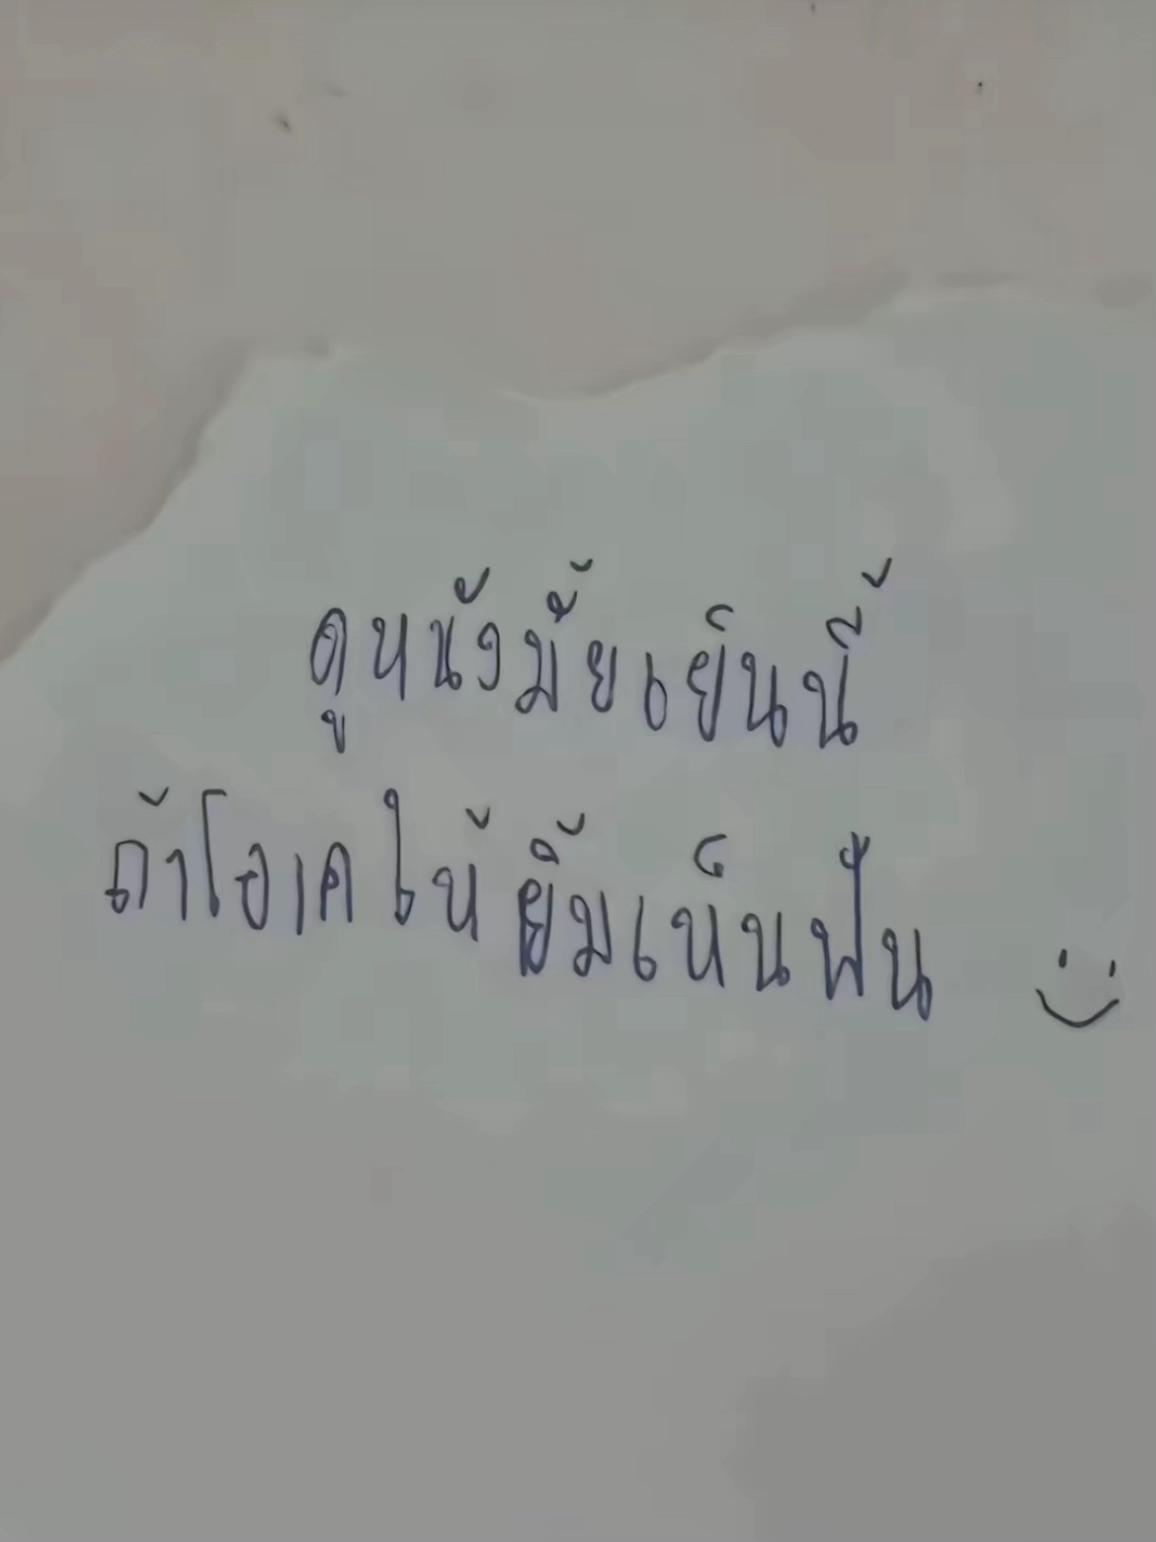 ดูหนังมั้ยเย็นนี้
ถ้าโอเคให้ยิ้มเห็นฟัน :)